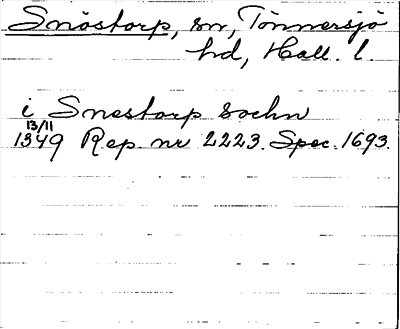 Snöstorp, sn, Tönnersjö
hd, Hall. l.
i Snestorp sochn
13/11
1349 Rep. nr 2223. Spec. 1693.